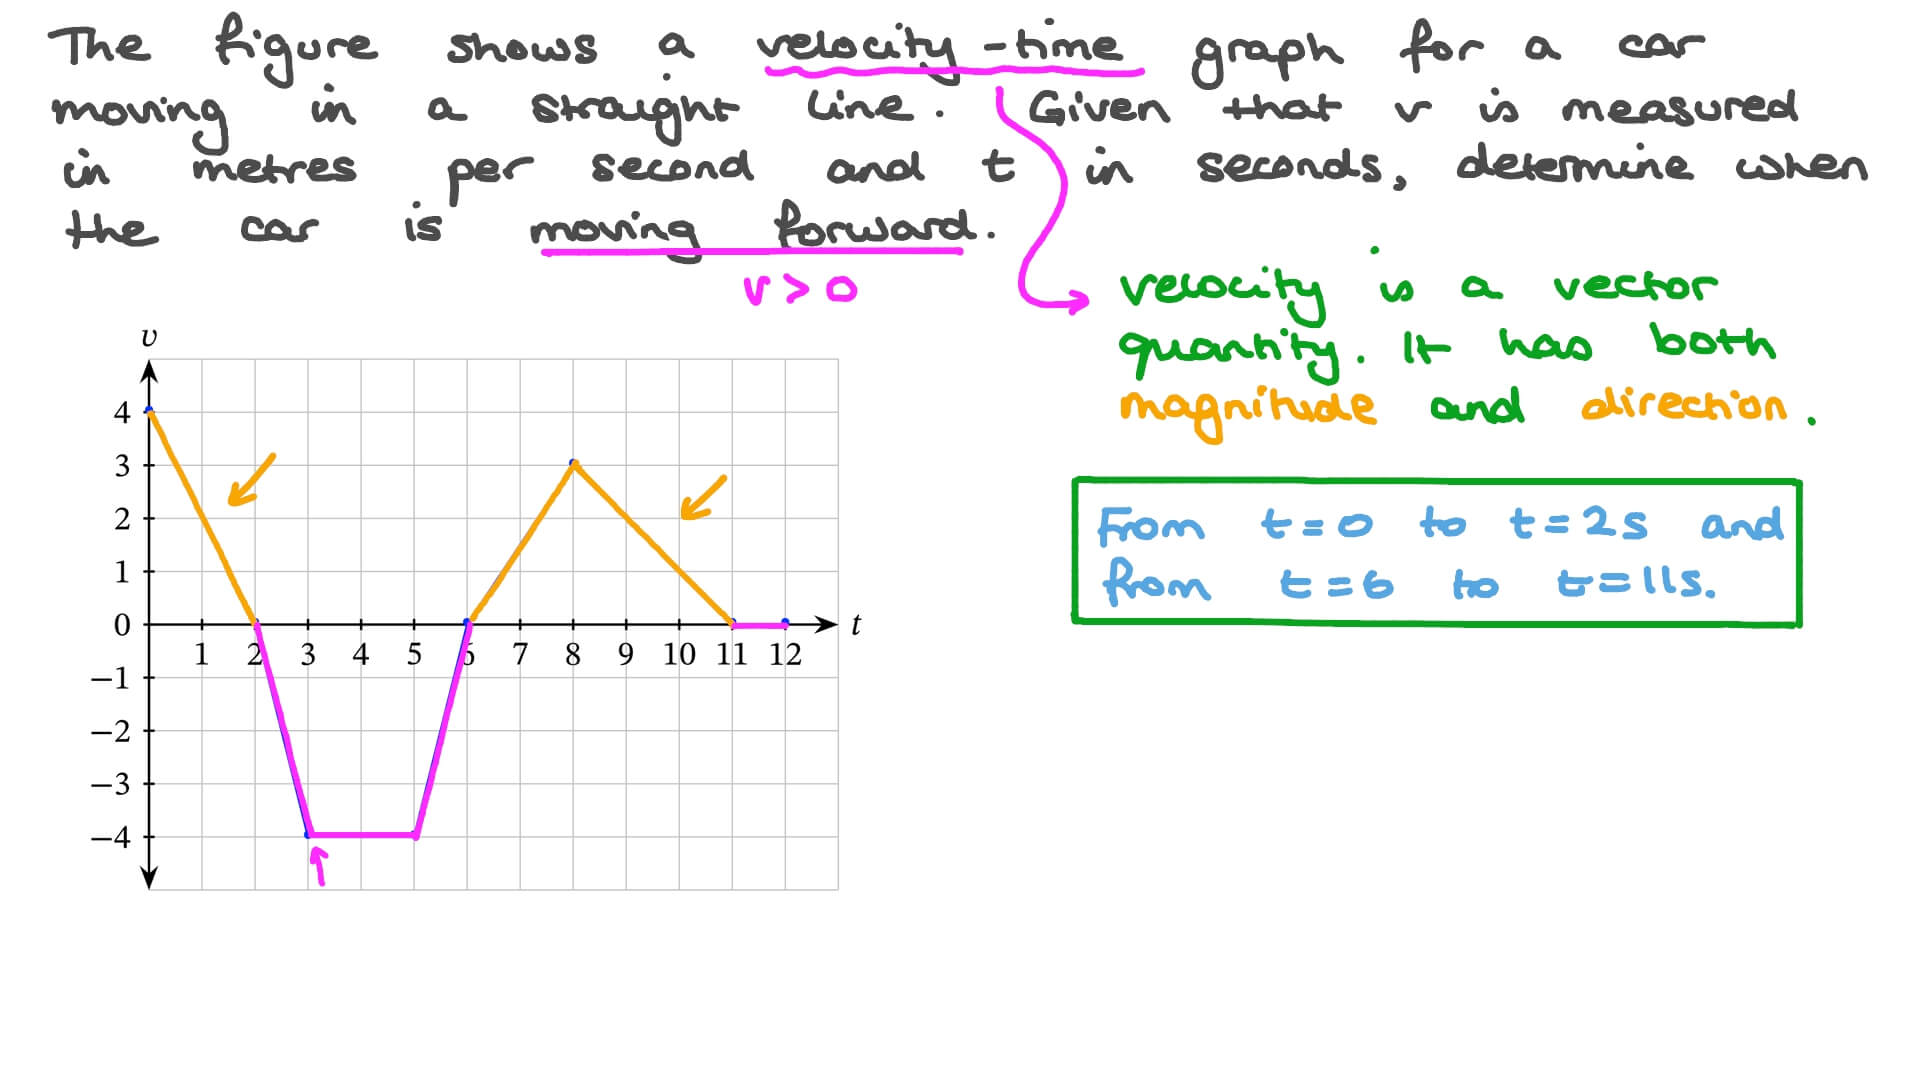 The figure shows a velocity-time graph for a car
moving in a straight line. Given that v is measured
in metres per second and t in seconds, determine when
the car is moving forward.
v>0
velocity is a vector
quantity. It has both
magnitude and direction.
From t=0 to t=2s and
from t=6 to t=11s.
v
4
3
2
1
0
t
1 2 3 4 5 6 7 8 9 10 11 12
−1
−2
−3
−4